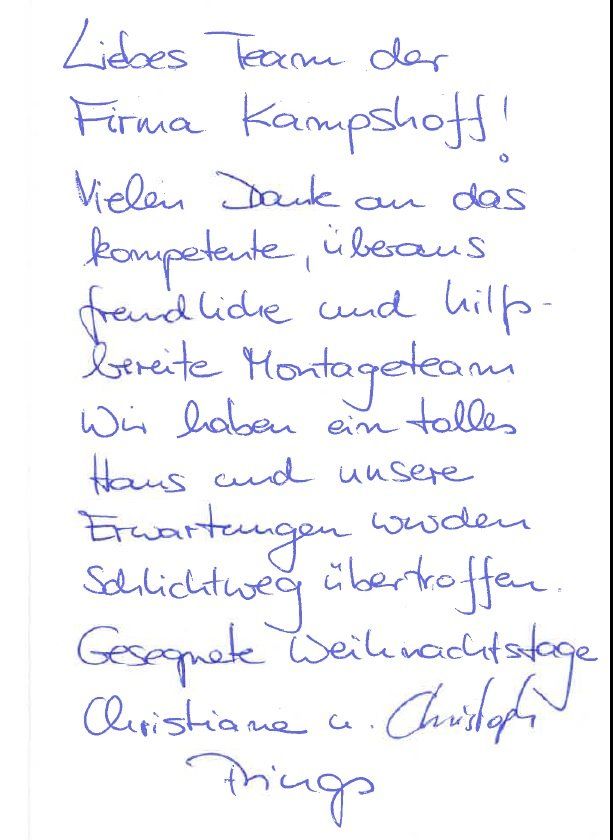 Liebes Team der
Firma Kampshoff!
Vielen Dank an das
kompetente, überaus
freundliche und hilfs-
bereite Montageteam
Wir haben ein tolles
Haus und unsere
Erwartungen wurden
Schlichtweg übertroffen.
Gesegnete Weihnachtstage
Christiane u. Christoph
Frings